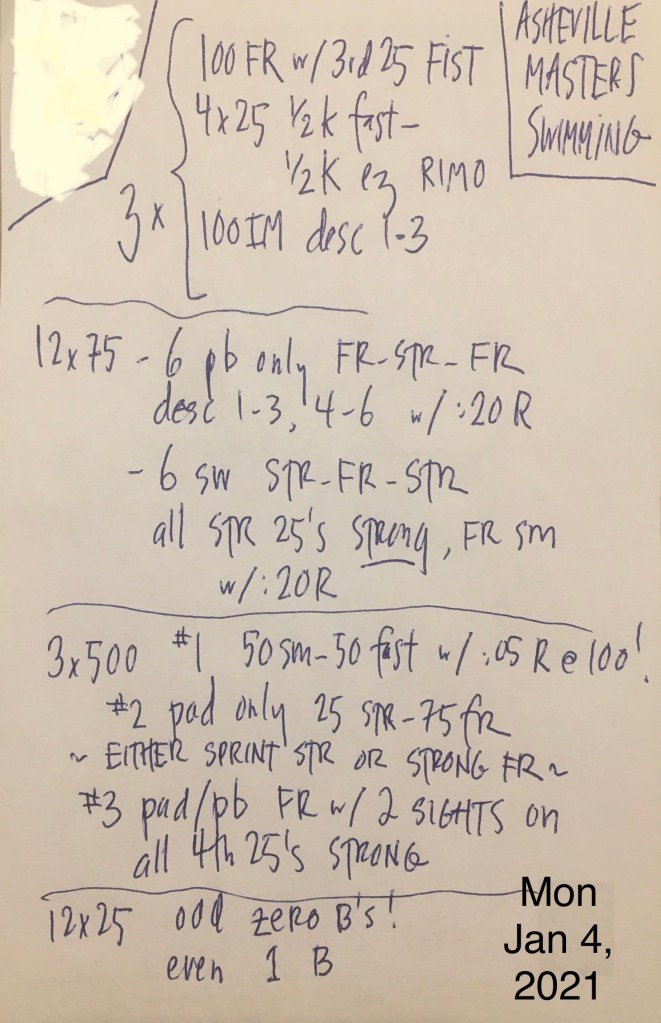 ASHEVILLE
MASTERS
SWIMMING
3x
100 FR w/ 3rd 25 FIST
4x25 1/2 K fast -
1/2 K ez RIMO
100 IM desc 1-3
12x75 - 6 pb only FR-STR-FR
desc 1-3, 4-6 w/ :20 R
- 6 sw STR-FR-STR
all STR 25's strong, FR sm
w/ :20R
3x500 #1 50 sm-50 fast w/ :05 R @ 100's!
#2 pad only 25 STR-75 fr
~ EITHER SPRINT STR OR STRONG FR ~
#3 pad/pb FR w/ 2 SIGHTS on
all 4th 25's STRONG
12x25 odd zero B's!
even 1 B
Mon
Jan 4,
2021